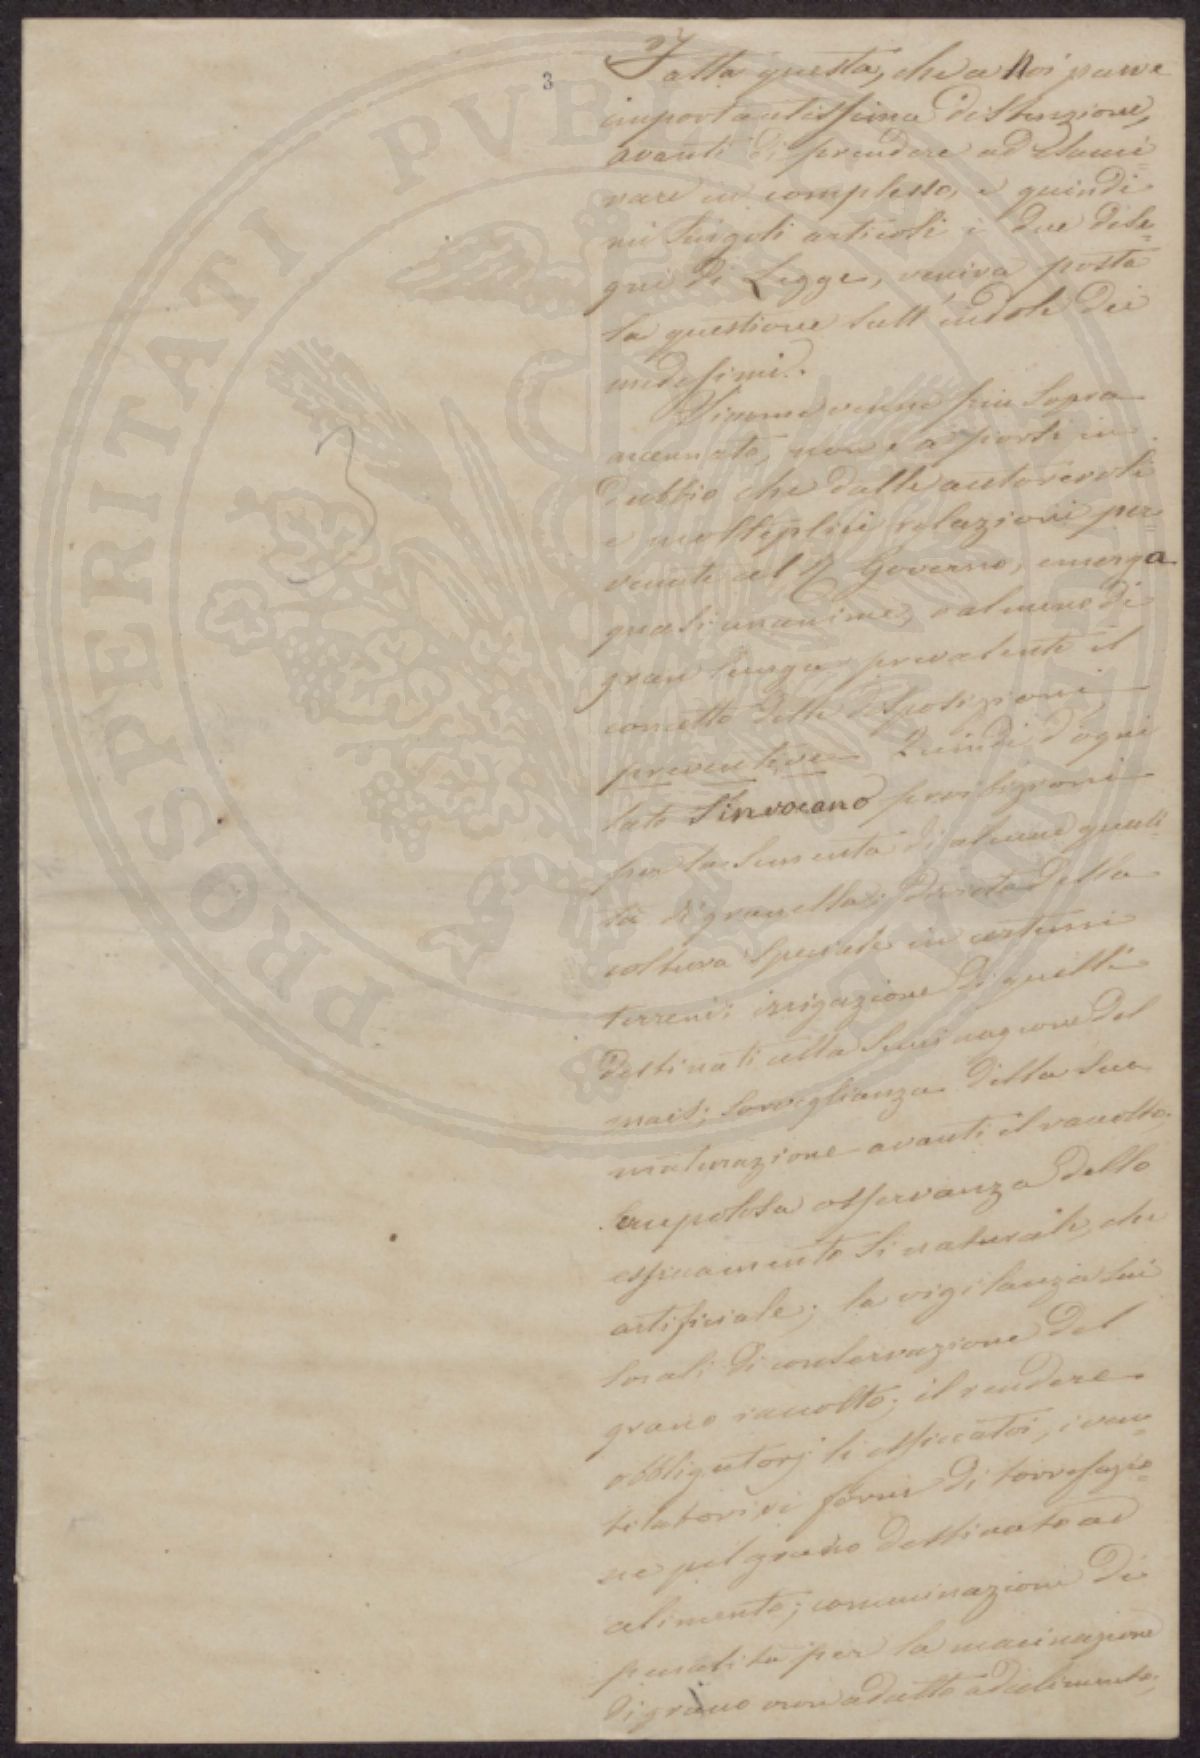 3
Fatta questa, che a Noi parve
importantissima distinzione,
avanti di prendere ad esami=
nare in complesso, e quindi
nei singoli articoli i due dise=
gni di Legge, veniva posta
la questione sull'indole dei
medesimi.
Siccome venne più sopra
accennato, non è a porsi in
dubbio che dalle autorevoli
e molteplici relazioni per=
venute al R Governo, emerga
quasi unanime, o almeno di
gran lunga prevalente il
concetto delle disposizioni
preventive. Quindi d'ogni
lato s'invocano proibizioni
per la sementa di alcune quali=
tà di granella; divieto della
coltura speciale in certuni
terreni; irrigazione di quelli
destinati alla seminagione del
mais; sorveglianza della sua
maturazione avanti il raccolto;
scrupolosa osservanza dello
essicamento sì naturale, che
artificiale; la vigilanza sui
locali di conservazione del
grano raccolto; il rendere
obbligatorj li essiccatoi, i ven=
tilatori, i forni di torrefazio=
ne pel grano destinato ad
alimento; comminazioni di
penalità per la macinazione
di grano non adatto ad alimento;
PROSPERITATI PVBLICAE